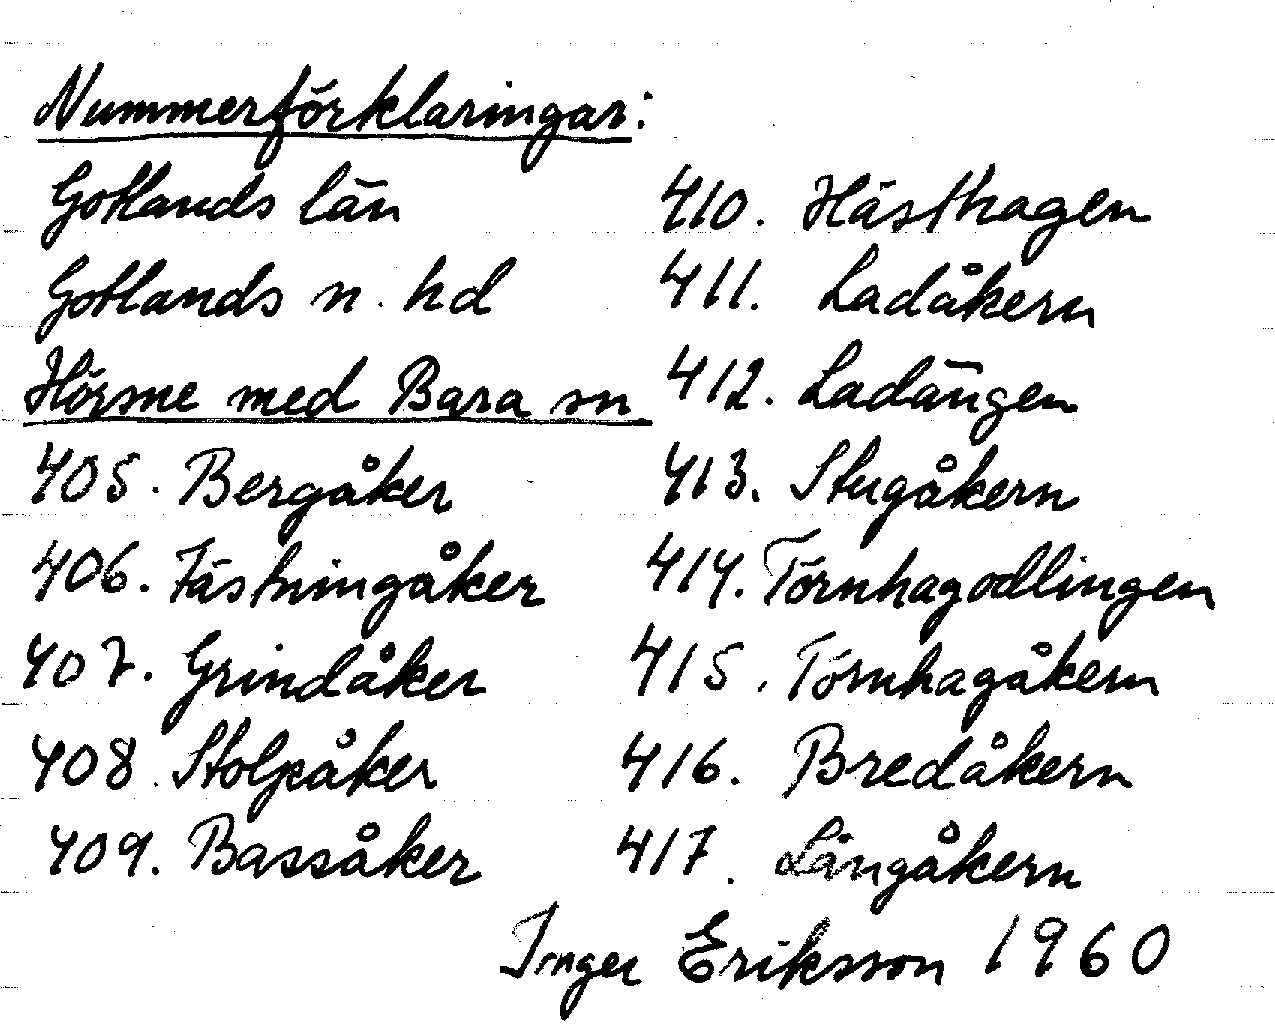 Nummerförklaringar:
Gotlands län
Gotlands n. hd
Hörsne med Bara sn
405. Bergåker
406. Fästningåker
407. Grindåker
408. Stolpåker
409. Bassåker
410. Hästhagen
411. Ladåkern
412. Ladängen
413. Stugåkern
414. Törnhagodlingen
415. Törnhagåkern
416. Bredåkern
417. Långåkern
Inger Eriksson 1960